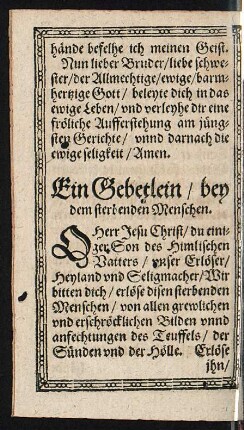 hände befelhe ich meinen Geist.
Nun lieber Bruder/ liebe schwe-
ster/ der Allmechtige/ ewige/ barm-
hertzige Gott/ beleyte dich in das
ewige Leben/ vnd verleyhe dir eine
fröliche Aufferstehung am jüng-
sten Gerichte/ vnnd darnach die
ewige seligkeit/ Amen.
Ein Gebetlein/ bey
dem sterbenden Menschen.
O Herr Jesu Christ/ du eini-
ger Son des Himlischen
Vatters/ vnser Erlöser/
Heyland vnd Seligmacher/ Wir
bitten dich/ erlöse disen sterbenden
Menschen/ von allen grewlichen
vnd erschröcklichen Bilden vnnd
anfechtungen des Teuffels/ der
Sünden vnd der Hölle. Erlöse
jhn/